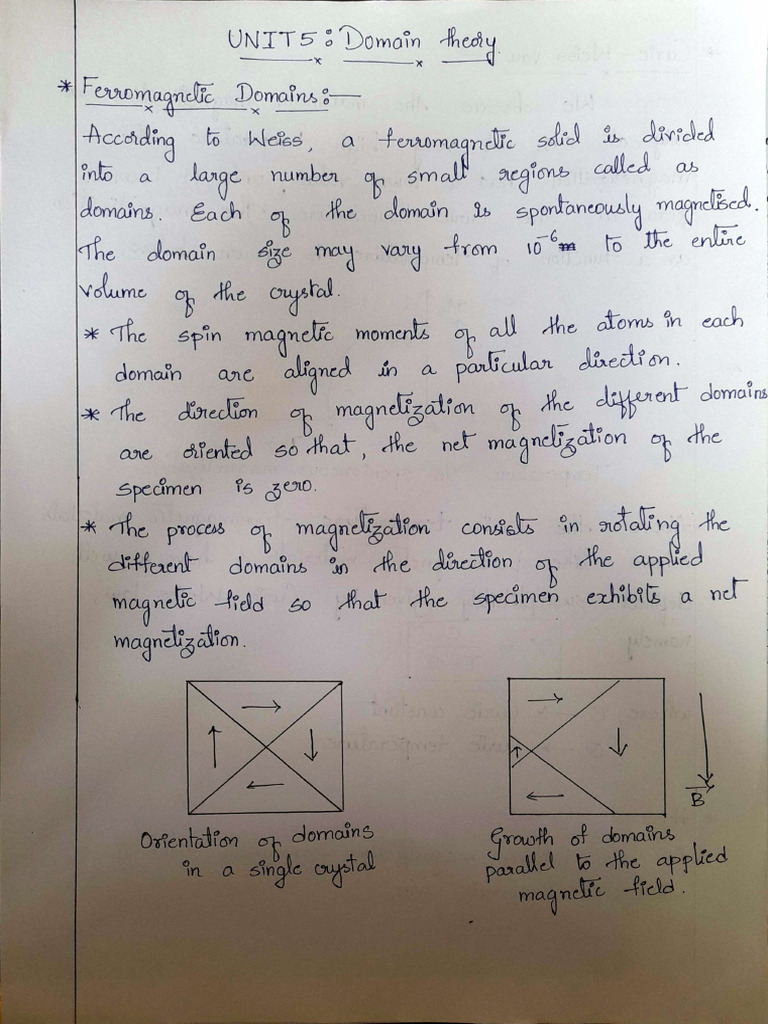 UNIT5: Domain theory.
* Ferromagnetic Domains:—
According to Weiss, a ferromagnetic solid is divided
into a large number of small regions called as
domains. Each of the domain is spontaneously magnetised.
The domain size may vary from 10⁻⁶ to the entire
volume of the crystal.
* The spin magnetic moments of all the atoms in each
domain are aligned in a particular direction.
* The direction of magnetization of the different domains
are oriented so that, the net magnetization of the
specimen is zero.
* The process of magnetization consists in rotating the
different domains in the direction of the applied
magnetic field so that the specimen exhibits a net
magnetization.
B
Orientation of domains
in a single crystal
Growth of domains
parallel to the applied
magnetic field.